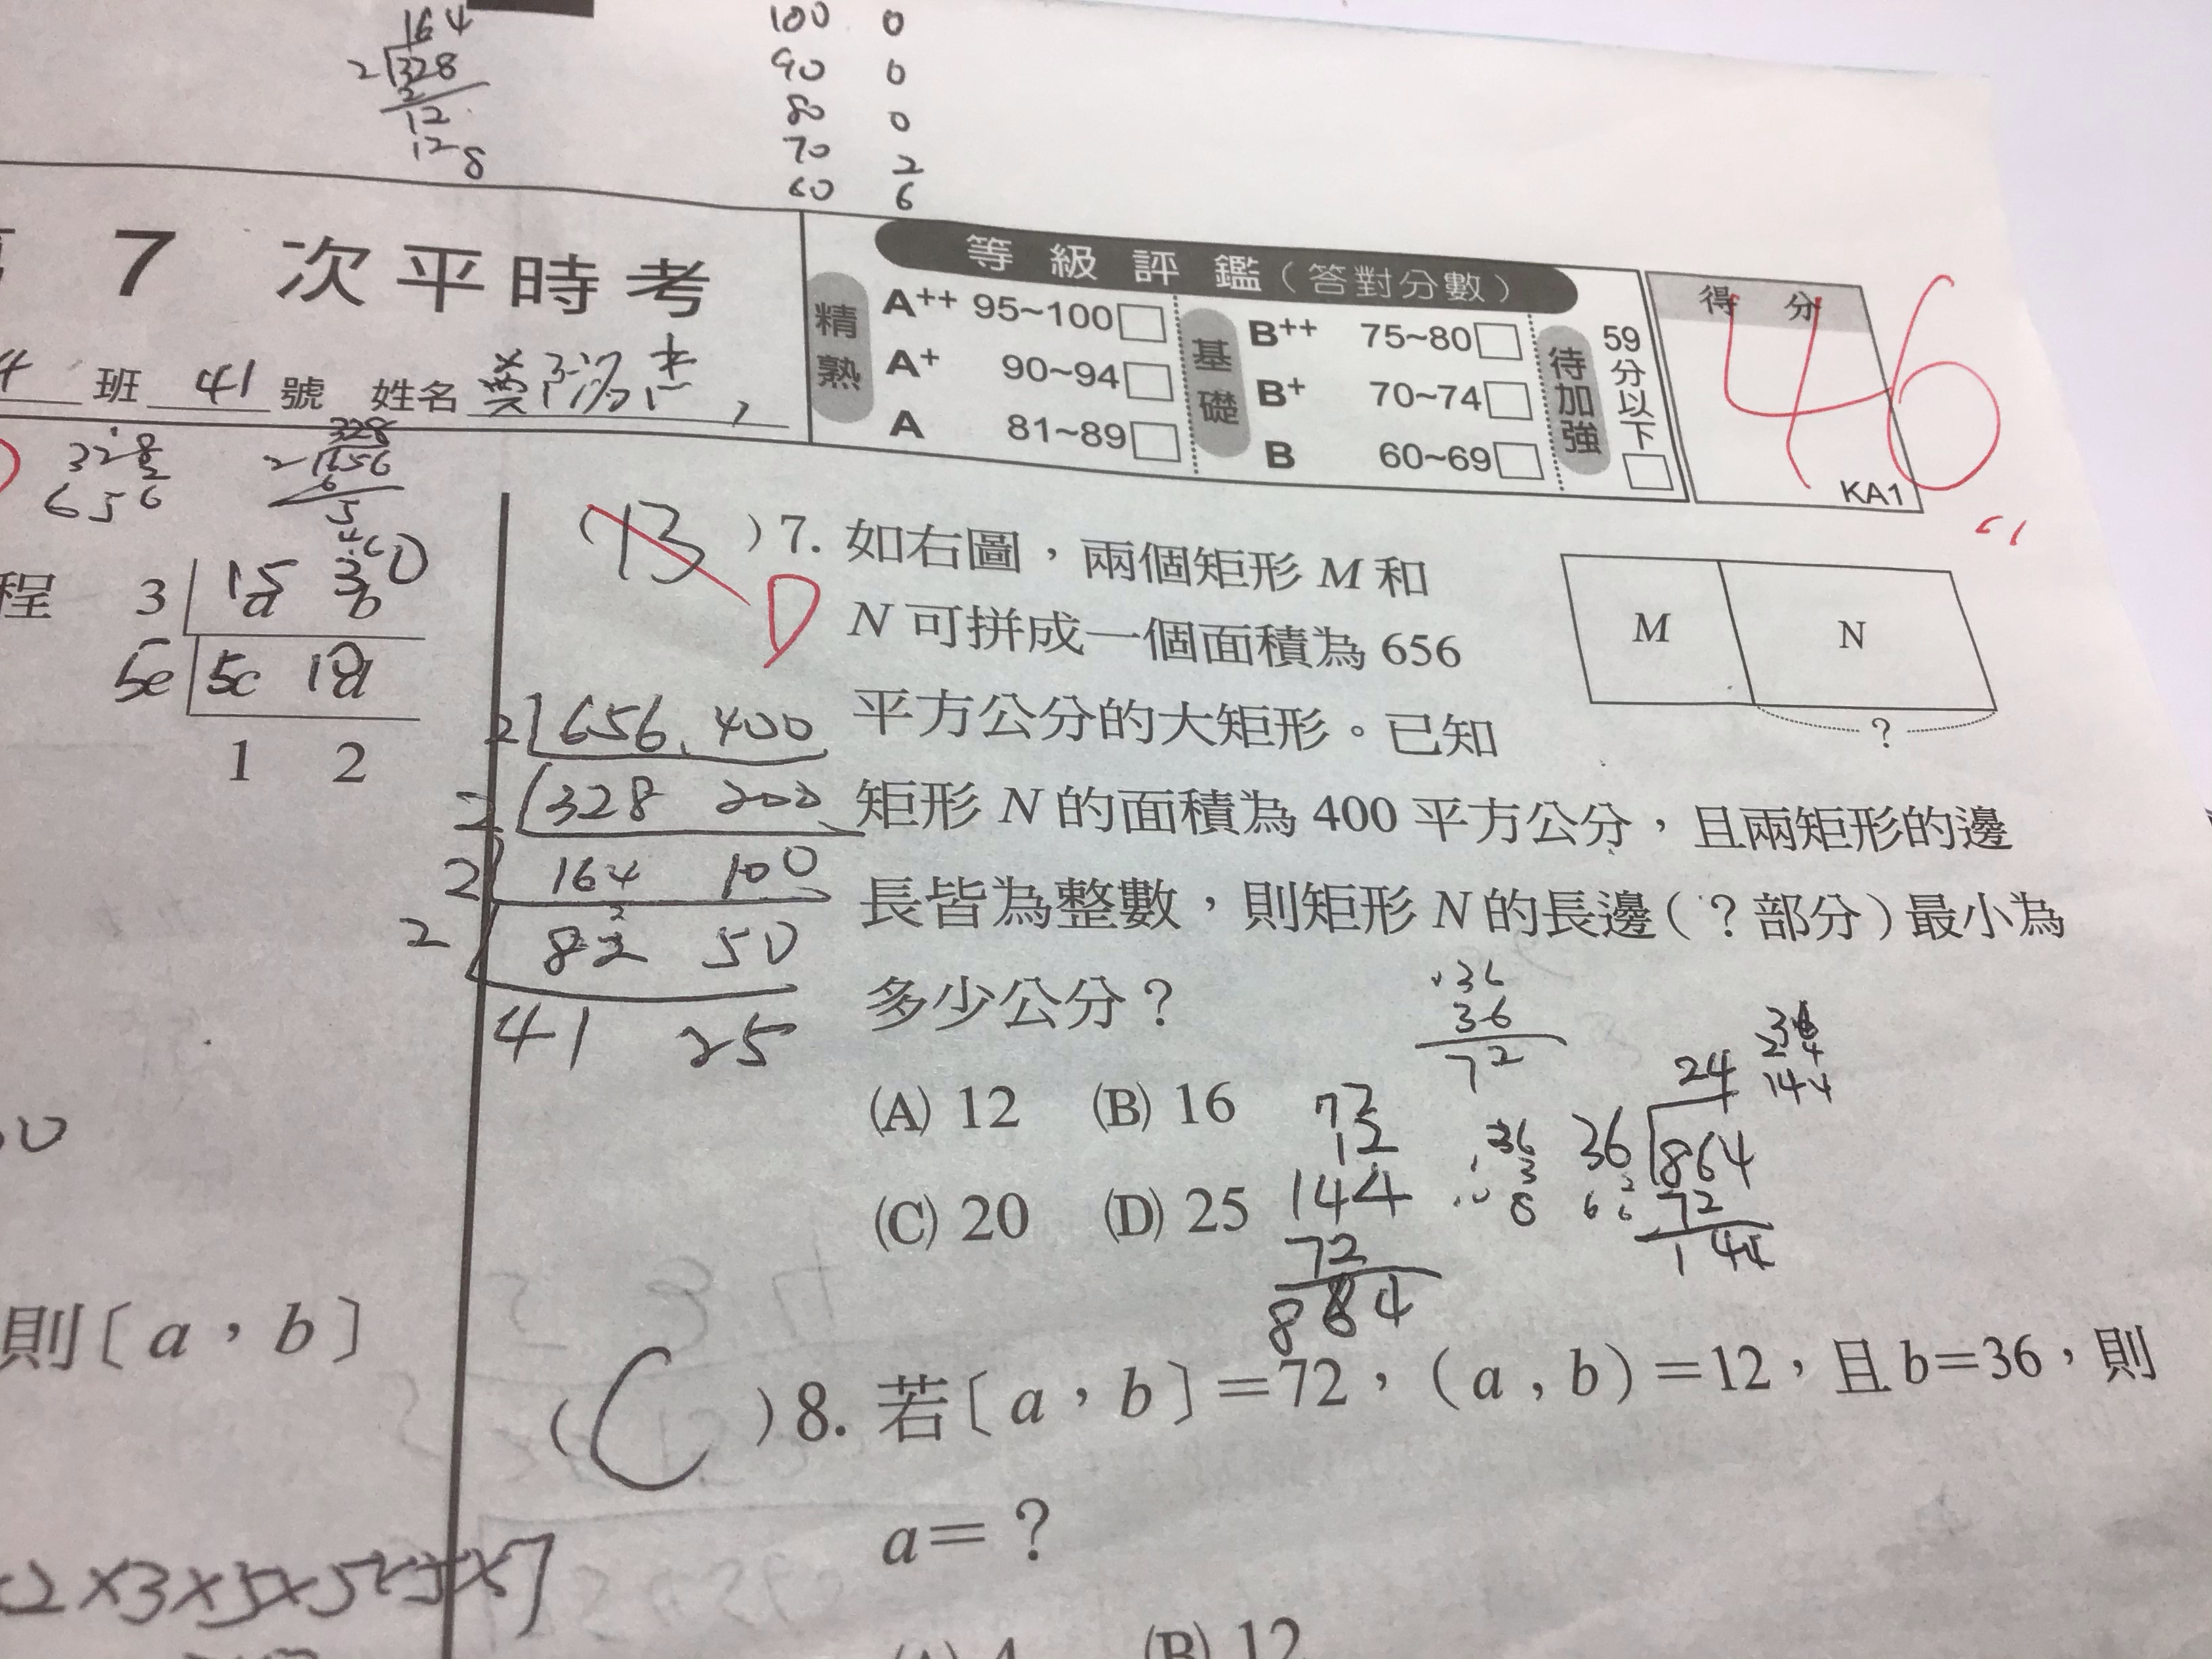 164
2 328
2
12
12 8
100 0
90 0
80 0
70 2
60 6
7 次平時考
4 班 41 號 姓名
等級評鑑(答對分數)
精熟
A++ 95~100
A+ 90~94
A 81~89
基礎
B++ 75~80
B+ 70~74
B 60~69
待加強
59分以下
得分
46
KA1
328
2
656
328
2 656
6
5
程 3 15 30
5e 5c
1 2
則〔a,b〕
2×3×5×5
(13)7. 如右圖,兩個矩形 M 和
D
N 可拼成一個面積為 656
平方公分的大矩形。已知
矩形 N 的面積為 400 平方公分,且兩矩形的邊
長皆為整數,則矩形 N 的長邊(?部分)最小為
多少公分?
M N
?
2 656 400
2 328 200
2 164 100
2 82 50
41 25
(A) 12 (B) 16
(C) 20 (D) 25
36
36
72
72
12
144
72
864
24
36 864
72
144
24
144
(C)8. 若〔a,b〕=72,(a,b)=12,且b=36,則
a=?
(A) 4 (B) 12